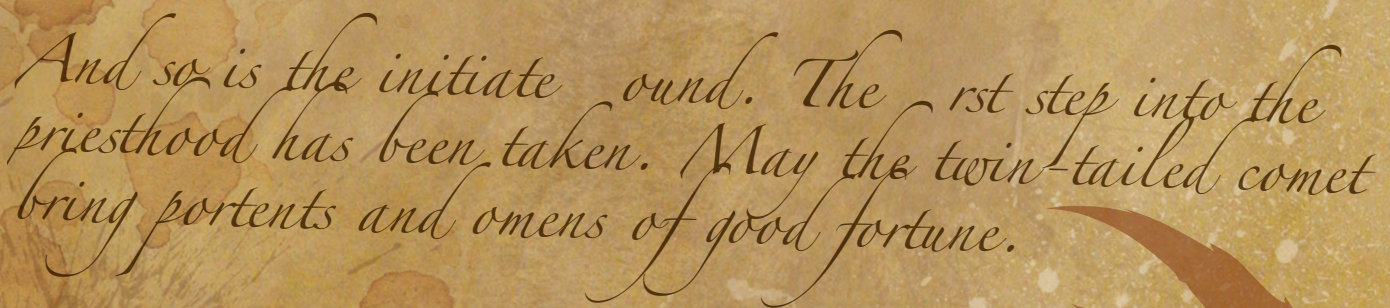 And so is the initiate ound. The rst step into the
priesthood has been taken. May the twin-tailed comet
bring portents and omens of good fortune.